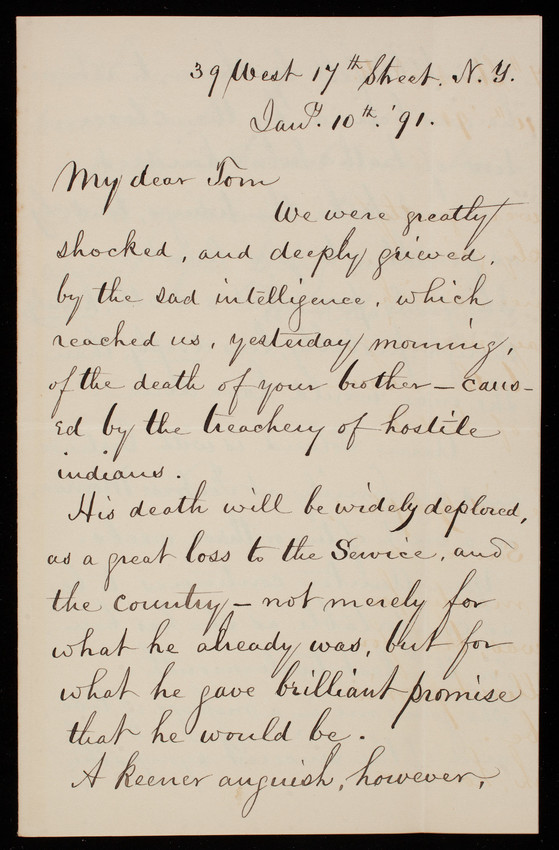 39 West 17th Street. N. Y.
Jany. 10th. '91.
My dear Tom
We were greatly
shocked, and deeply grieved,
by the sad intelligence, which
reached us, yesterday morning,
of the death of your brother – caus-
ed by the treachery of hostile
indians.
His death will be widely deplored,
as a great loss to the Service, and
the country – not merely for
what he already was, but for
what he gave brilliant promise
that he would be.
A keener anguish, however,